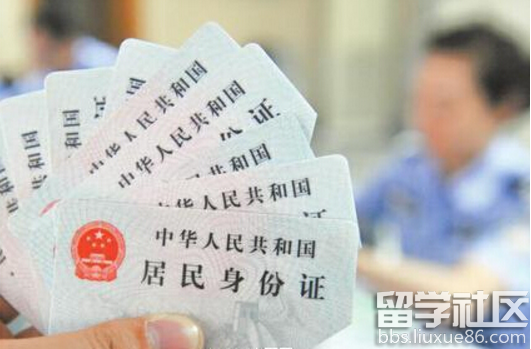 中华人民共和国
中华人民共和国
中华人民共和国
中华人民共和国
中华人民共和国
居民身份证
留学社区
bbs.liuxue86.com